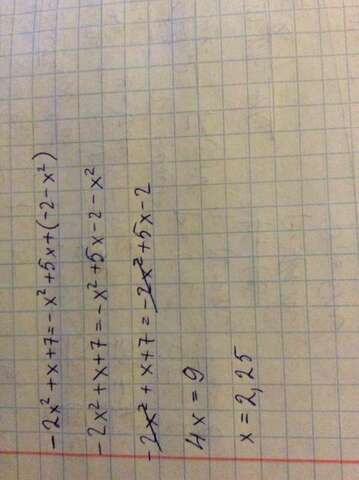 -2x²+x+7=-x²+5x+(-2-x²)
-2x²+x+7=-x²+5x-2-x²
-2x²+x+7=-2x²+5x-2
4x=9
x=2,25